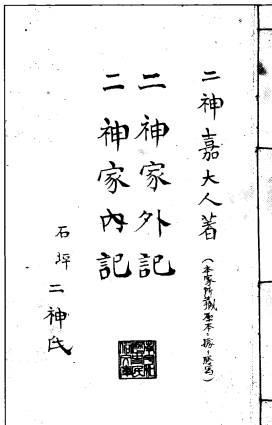 二神嘉大人著
(本家所蔵原本ニ拠リ謄写)
二神家外記
二神家内記
石坪 二神氏